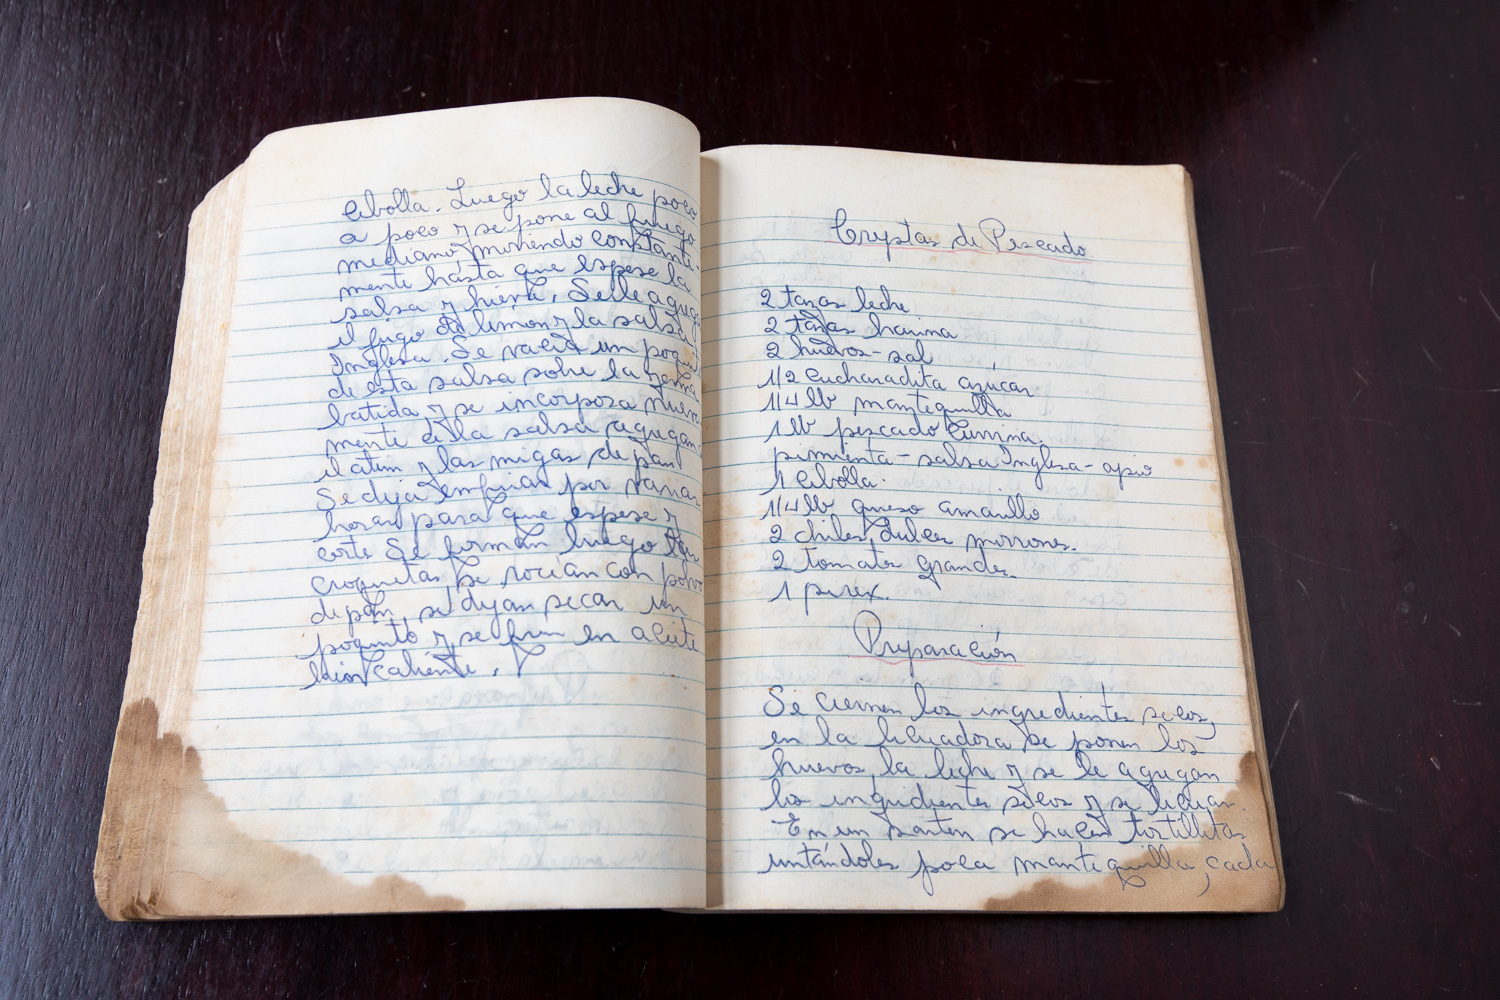 cebolla. Luego la leche poco
a poco y se pone al fuego
mediano, moviendo constante-
mente hasta que espese la
salsa y hierva. Se le agrega
el jugo de limón y la salsa
Inglesa. Se vacía un poquito
de esta salsa sobre la yema
batida y se incorpora nueva
mente a la salsa, agregan
el atún y las migas de pan
Se deja enfriar por varias
horas para que espese y
corte. Se forman luego las
croquetas, se rocían con polvo
de pan, se dejan secar un
poquito y se fríen en aceite
bien caliente.
Creptas de Pescado.
2 tazas leche
2 tazas harina
2 huevos - sal
1/2 cucharadita azúcar
1/4 lb mantequilla
1 lb pescado Curvina.
pimienta - salsa Inglesa - apio
1 cebolla.
1/4 lb queso amarillo
2 chiles dulces morrones.
2 tomates grandes.
1 pirex.
Preparación
Se ciernen los ingredientes secos,
en la licuadora se ponen los
huevos, la leche y se le agregan
los ingredientes secos y se licúan.
En un sartén se hacen tortillitas
untándoles poca mantequilla, cada